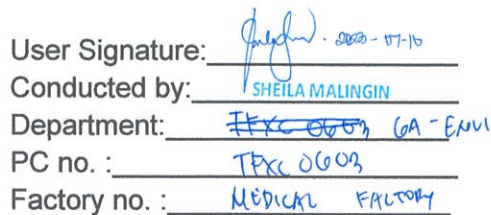 User Signature: 2020-07-10
Conducted by: SHEILA MALINGIN
Department: TFXC 0603 GA-ENVI
PC no. : TFXC 0603
Factory no. : MEDICAL FACTORY